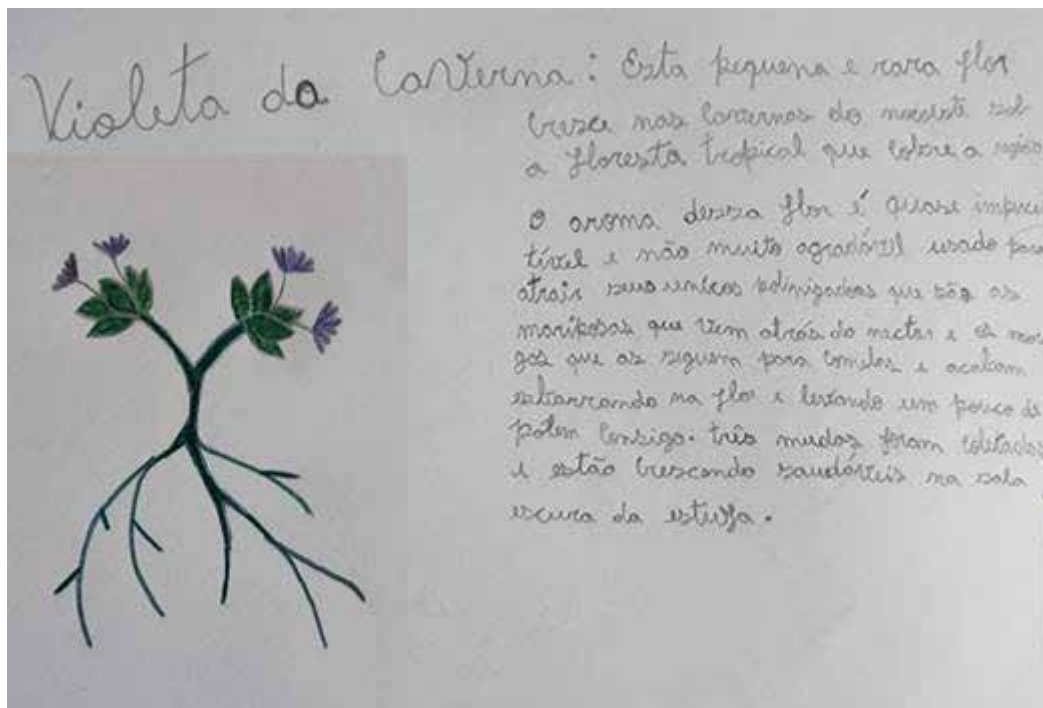 Violeta da Caverna: Esta pequena e rara flor
cresce nas cavernas do noroeste sob
a floresta tropical que cobre a região
O aroma dessa flor é quase imperce
tível e não muito agradável usado para
atrair seus unicos polinizadores que são as
mariposas que vem atrás do nectar e os mor
gos que as seguem para comelas e acabam
esbarrando na flor e levando um pouco de
polem consigo. três mudas foram coletadas
e estão crescendo saudáveis na sala
escura da estufa.